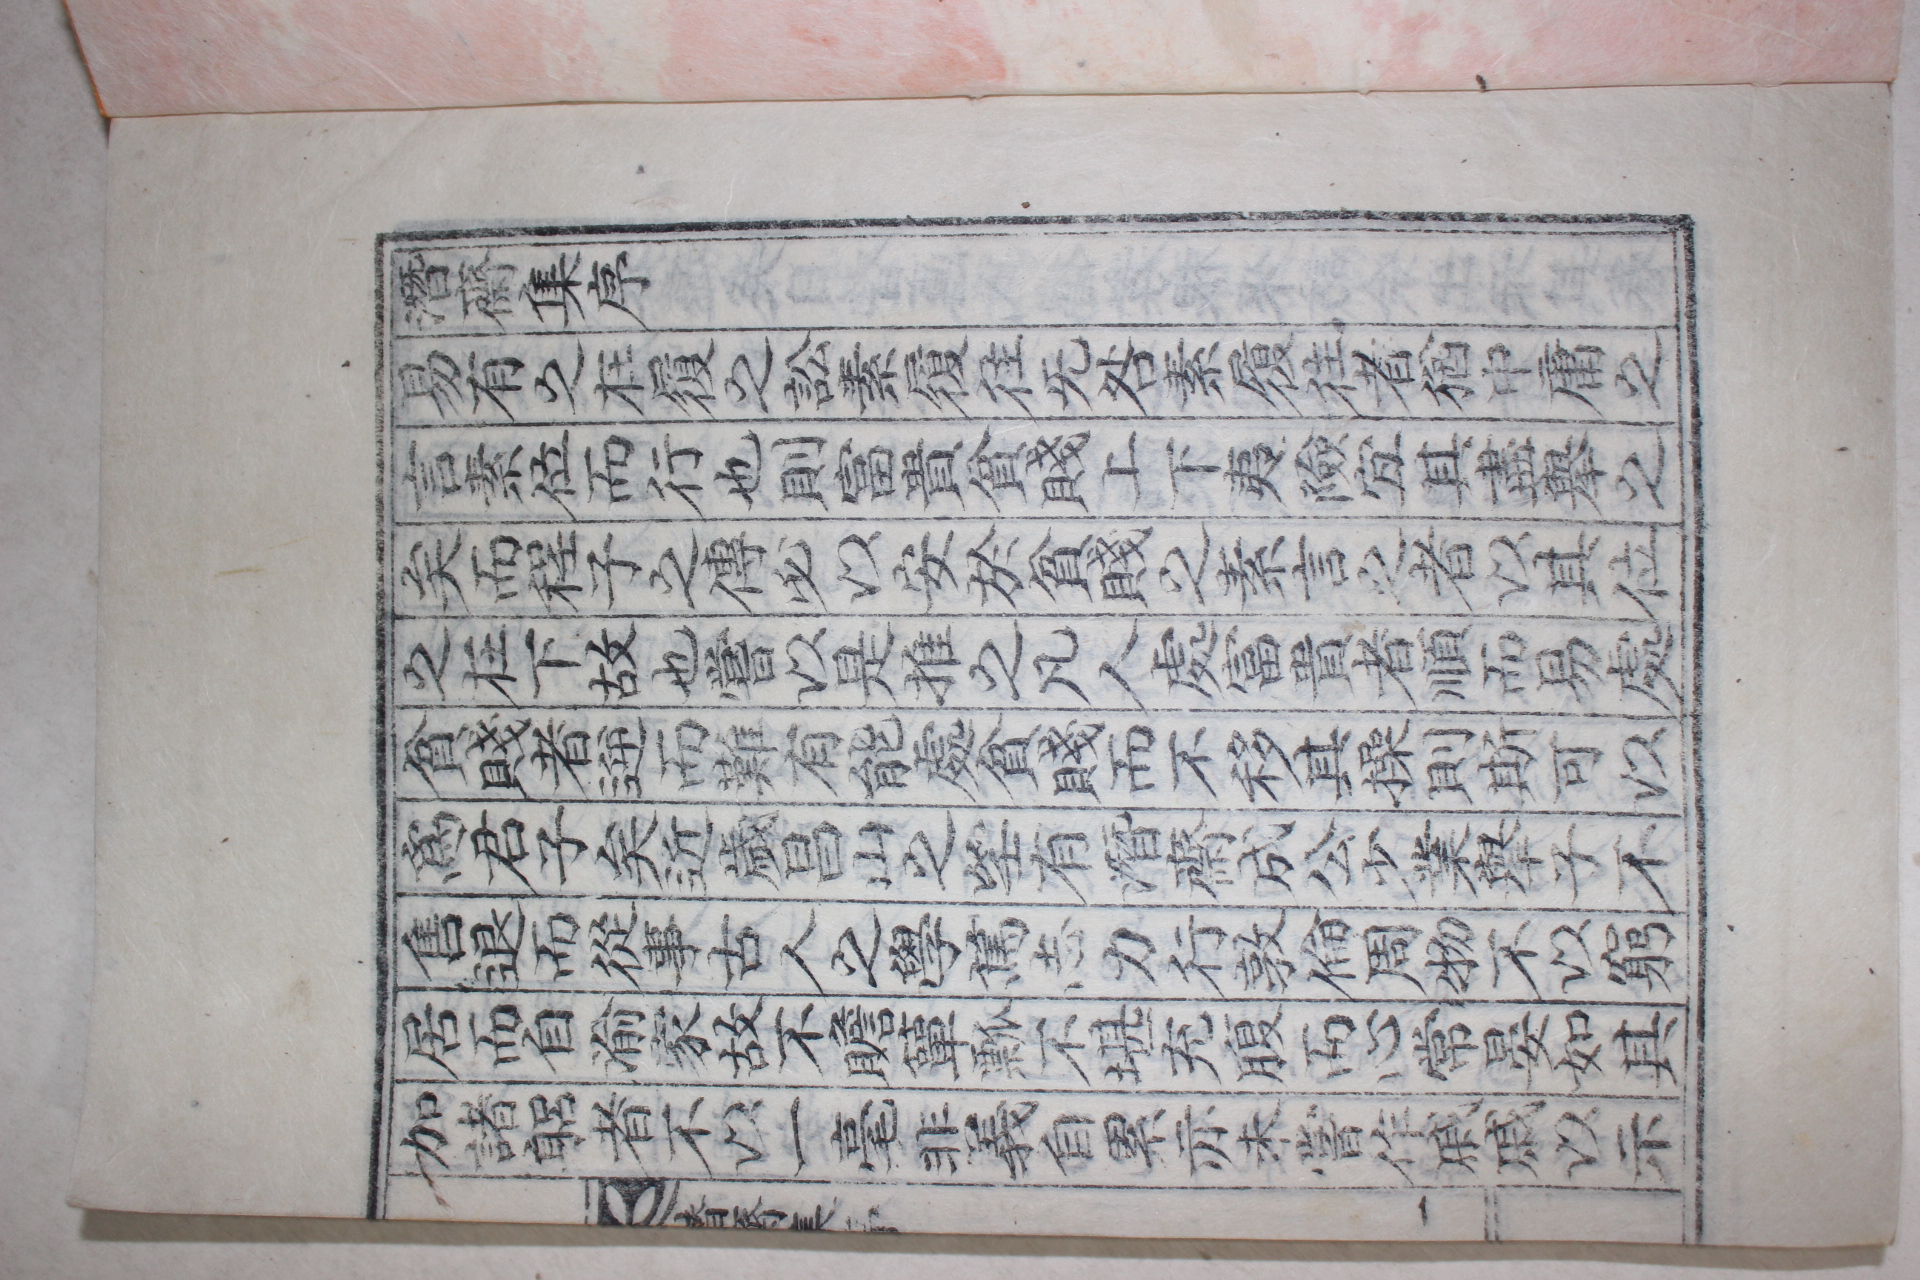 潛齋集序
易有之在履之訟素履徃无咎素履徃者猶中庸之
言素位而行也則富貴貧賤上下夷險宜其盡舉之
矣而程子之傳必以安於貧賤之素言之者以其位
之在下故也嘗以是推之凡人處富貴者順而易處
貧賤者逆而難有能處貧賤而不移其操則斯可以
爲君子矣近歲昌山之塋有潛齋成公少業舉子不
售退而從事古人之學篤志力行敦倫周物不以窮
居而自渝家故不贍簞瓢不堪充腹而心常晏如其
加諸躬者不以一毫非義自累亦未嘗作戚戚以示
潛齋集序
一